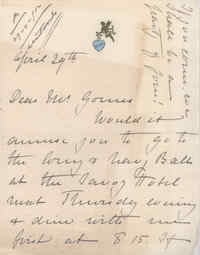 If you come we
should be a
party of four!
April 29th
Dear Mrs
Would it
amuse you to go to
the Army & Navy Ball
at the Savoy Hotel
next Thursday evening
& dine with me
first at 8.15. If